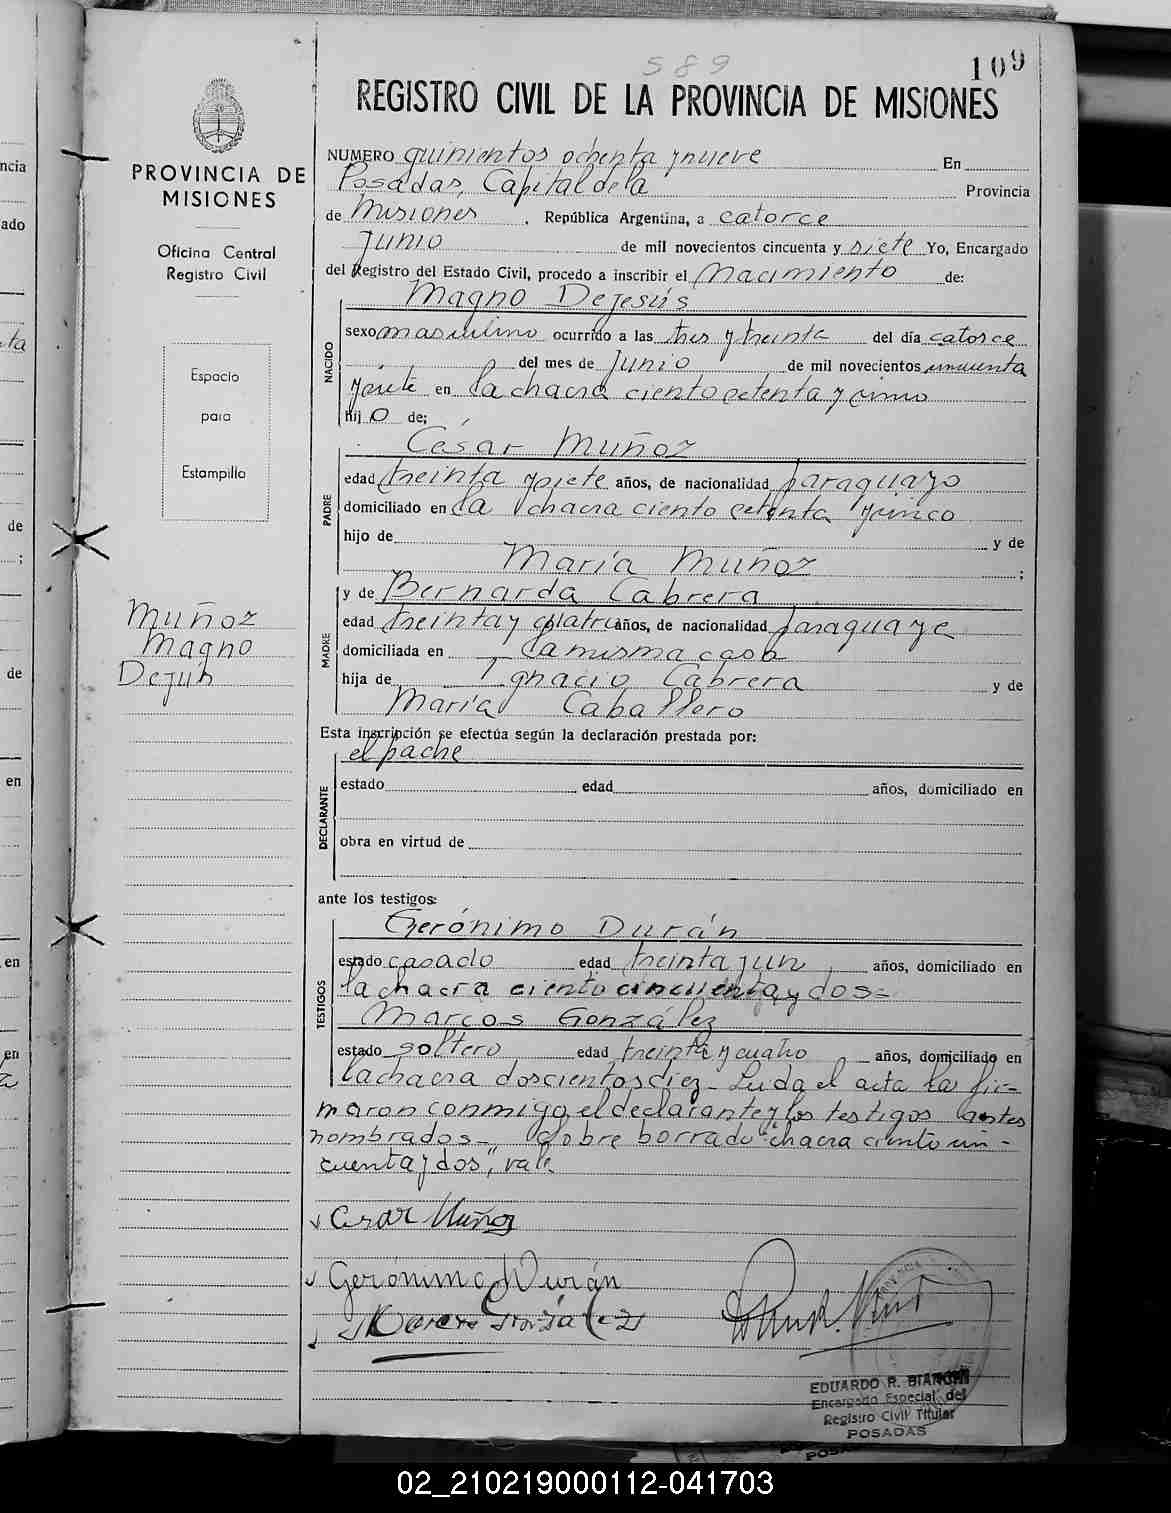 589
109
REGISTRO CIVIL DE LA PROVINCIA DE MISIONES
PROVINCIA DE
MISIONES
Oficina Central
Registro Civil
Espacio
para
Estampilla
Muñoz
Magno
Dejesús
NUMERO quinientos ochenta y nueve En
Posadas, Capital de la Provincia
de Misiones , República Argentina, a catorce
Junio de mil novecientos cincuenta y siete Yo, Encargado
del Registro del Estado Civil, procedo a inscribir el Nacimiento de:
Magno Dejesús
NACIDO
sexo masculino ocurrido a las tres y treinta del día catorce
del mes de Junio de mil novecientos cincuenta
y siete en la chacra ciento setenta y cinco
hijo de;
César Muñoz
PADRE
edad treinta y siete años, de nacionalidad paraguayo
domiciliado en la chacra ciento setenta y cinco
hijo de y de
María Muñoz ;
y de Bernarda Cabrera
MADRE
edad treinta y cuatro años, de nacionalidad paraguaya
domiciliada en la misma casa
hija de Ignacio Cabrera y de
María Caballero
Esta inscripción se efectúa según la declaración prestada por:
el padre
DECLARANTE
estado edad años, domiciliado en
obra en virtud de
ante los testigos:
Gerónimo Durán
TESTIGOS
estado casado edad treinta y un años, domiciliado en
la chacra ciento cincuenta y dos=
Marcos González
estado soltero edad treinta y cuatro años, domiciliado en
la chacra doscientos diez- Leida el acta la fir=
maron conmigo el declarante y los testigos antes
nombrados- Sobre borrado "chacra ciento cin-
cuenta y dos", vale
Cesar Muñoz
Gerónimo Durán
EDUARDO R. BIANCHI
Encargado Especial del
Registro Civil Titular
POSADAS
02_210219000112-041703